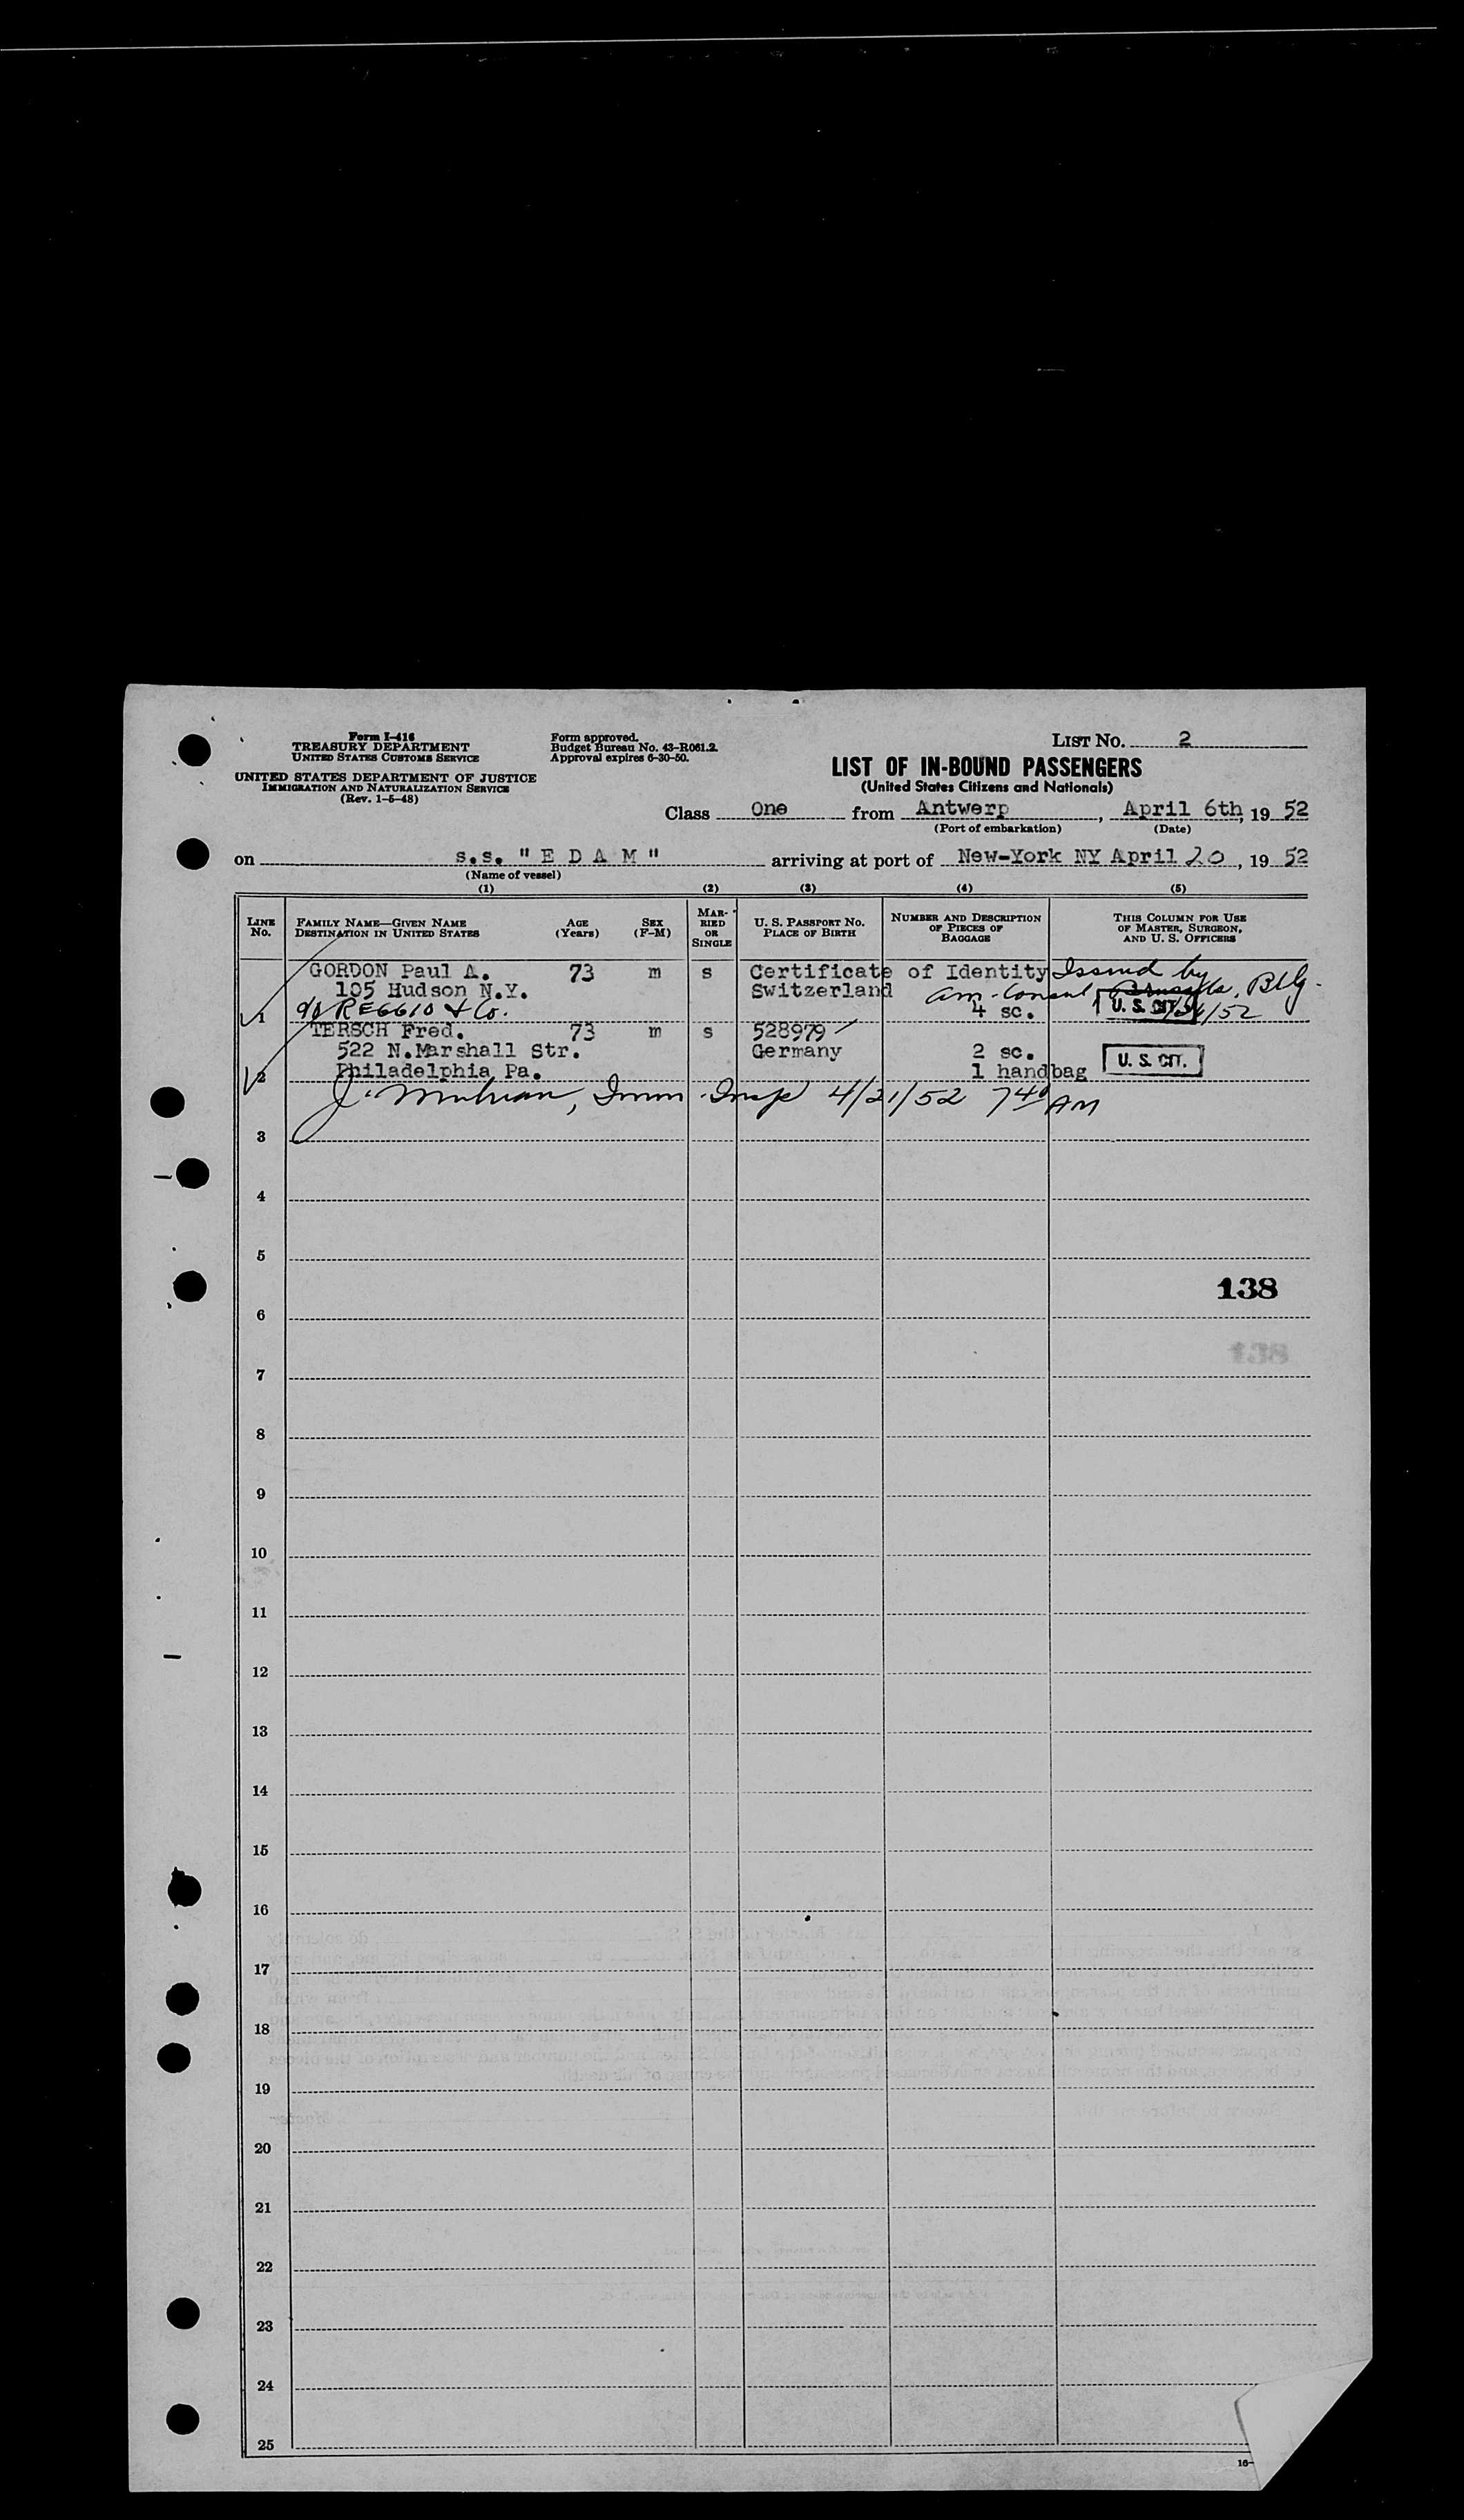 Form I-416
TREASURY DEPARTMENT
UNITED STATES CUSTOMS SERVICE
UNITED STATES DEPARTMENT OF JUSTICE
IMMIGRATION AND NATURALIZATION SERVICE
(Rev. 1-5-48)
Form approved.
Budget Bureau No. 43-R061.2.
Approval expires 6-30-50.
LIST No. 2
LIST OF IN-BOUND PASSENGERS
(United States Citizens and Nationals)
Class One from Antwerp, April 6th, 19 52
(Port of embarkation) (Date)
on s.s. "E D A M" arriving at port of New-York NY April 20, 19 52
(Name of vessel)
(1) (2) (3) (4) (5)
LINE No. FAMILY NAME—GIVEN NAME DESTINATION IN UNITED STATES AGE (Years) SEX (F-M) MARRIED OR SINGLE U. S. PASSPORT No. PLACE OF BIRTH NUMBER AND DESCRIPTION OF PIECES OF BAGGAGE THIS COLUMN FOR USE OF MASTER, SURGEON, AND U. S. OFFICERS
GORDON Paul A. 73 m s Certificate of Identity Issued by
105 Hudson N.Y. Switzerland Am. Consul Brussels, Blg.
1 c/o REGGIO & Co. 4 sc. U. S. CIT. /52
TERSCH Fred. 73 m s 528979
522 N.Marshall Str. Germany 2 sc.
2 Philadelphia Pa. 1 handbag U. S. CIT.
J. Imm. Insp 4/21/52 7 40 AM
3
4
5
138
6
138
7
8
9
10
11
12
13
14
15
16
17
18
19
20
21
22
23
24
25
16-